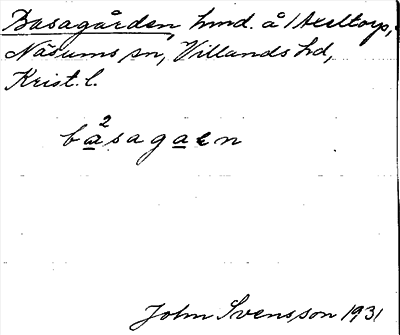 Basagården, hmd. å 1 Axeltorp,
Näsums sn, Villands hd,
Krist. l.
bå²sagaen
John Svensson 1931